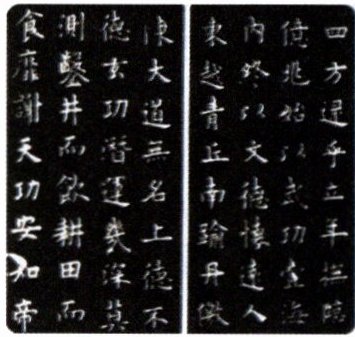 四方逮乎立年撫臨
億兆始以武功壹海
內終以文德懷遠人
東越青丘南踰丹徼
陳大道無名上德不
德玄功潛運幾深莫
測鑿井而飲耕田而
食靡謝天功安知帝